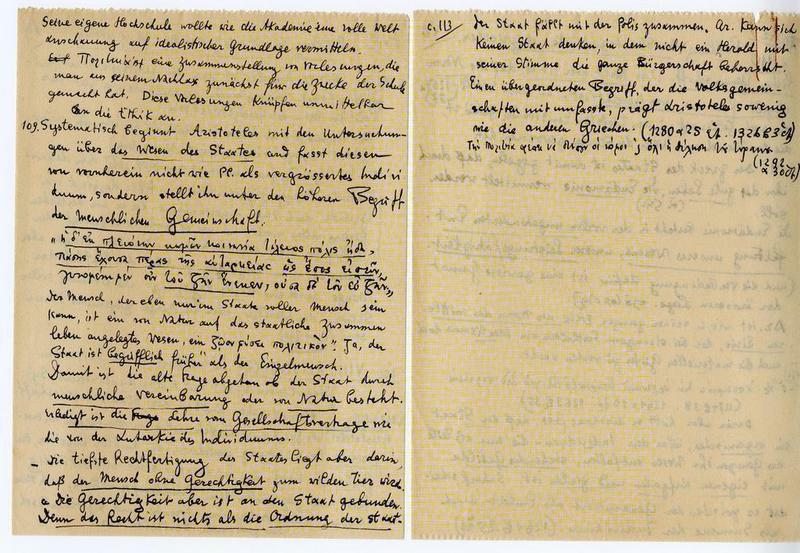 Seine eigene Hochschule wollte wie die Akademie eine volle Welt
anschauung auf idealistischer Grundlage vermitteln.
Πολιτικά ist eine Zusammenstellung von Vorlesungen, die
man aus seinem Nachlass zunächst für die Zwecke der Schule
gemacht hat. Diese Vorlesungen knüpfen unmittelbar
an die Ethik an.
109. Systematisch beginnt Aristoteles mit den Untersuchun-
gen über das Wesen des Staates und fasst diesen
von vornherein nicht wie Pl. als vergrössertes Indivi
duum, sondern stellt ihn unter den höheren Begriff
der menschlichen Gemeinschaft.
„ἡ δ' ἐκ πλειόνων κωμῶν κοινωνία τέλειος πόλις ἤδη,
πάσης ἔχουσα πέρας τῆς αὐταρκείας ὡς ἔπος εἰπεῖν,
γινομένη μὲν οὖν τοῦ ζῆν ἕνεκεν, οὖσα δὲ τοῦ εὖ ζῆν„
Der Mensch, der eben nur im Staate voller Mensch sein
kann, ist ein von Natur auf das staatliche Zusammen
leben angelegtes Wesen, ein ζῷον φύσει πολιτικόν". Ja, der
Staat ist begrifflich früher als der Einzelmensch.
Damit ist die alte Frage abgetan ob der Staat durch
menschliche Vereinbarung oder von Natur besteht.
Erledigt ist die Lehre vom Gesellschaftsvertrage wie
die von der Autarkie des Individuums.
– Die tiefste Rechtfertigung des Staates liegt aber darin,
daß der Mensch ohne Gerechtigkeit zum wilden Tier wird.
Die Gerechtigkeit aber ist an den Staat gebunden.
Denn das Recht ist nichts als die Ordnung der staat-
c. 113 Der Staat fällt mit der Polis zusammen. Ar. kann sich
keinen Staat denken, in dem nicht ein Herold mit
seiner Stimme die ganze Bürgerschaft beherrscht.
Einen übergeordneten Begriff, der die Volksgemein-
schaften mit umfasste, prägt Aristoteles sowenig
wie die anderen Griechen. (1280 a 25 ἐφ. 1326 b 3 ἐφ)
(1292
a 30 ἐφ)